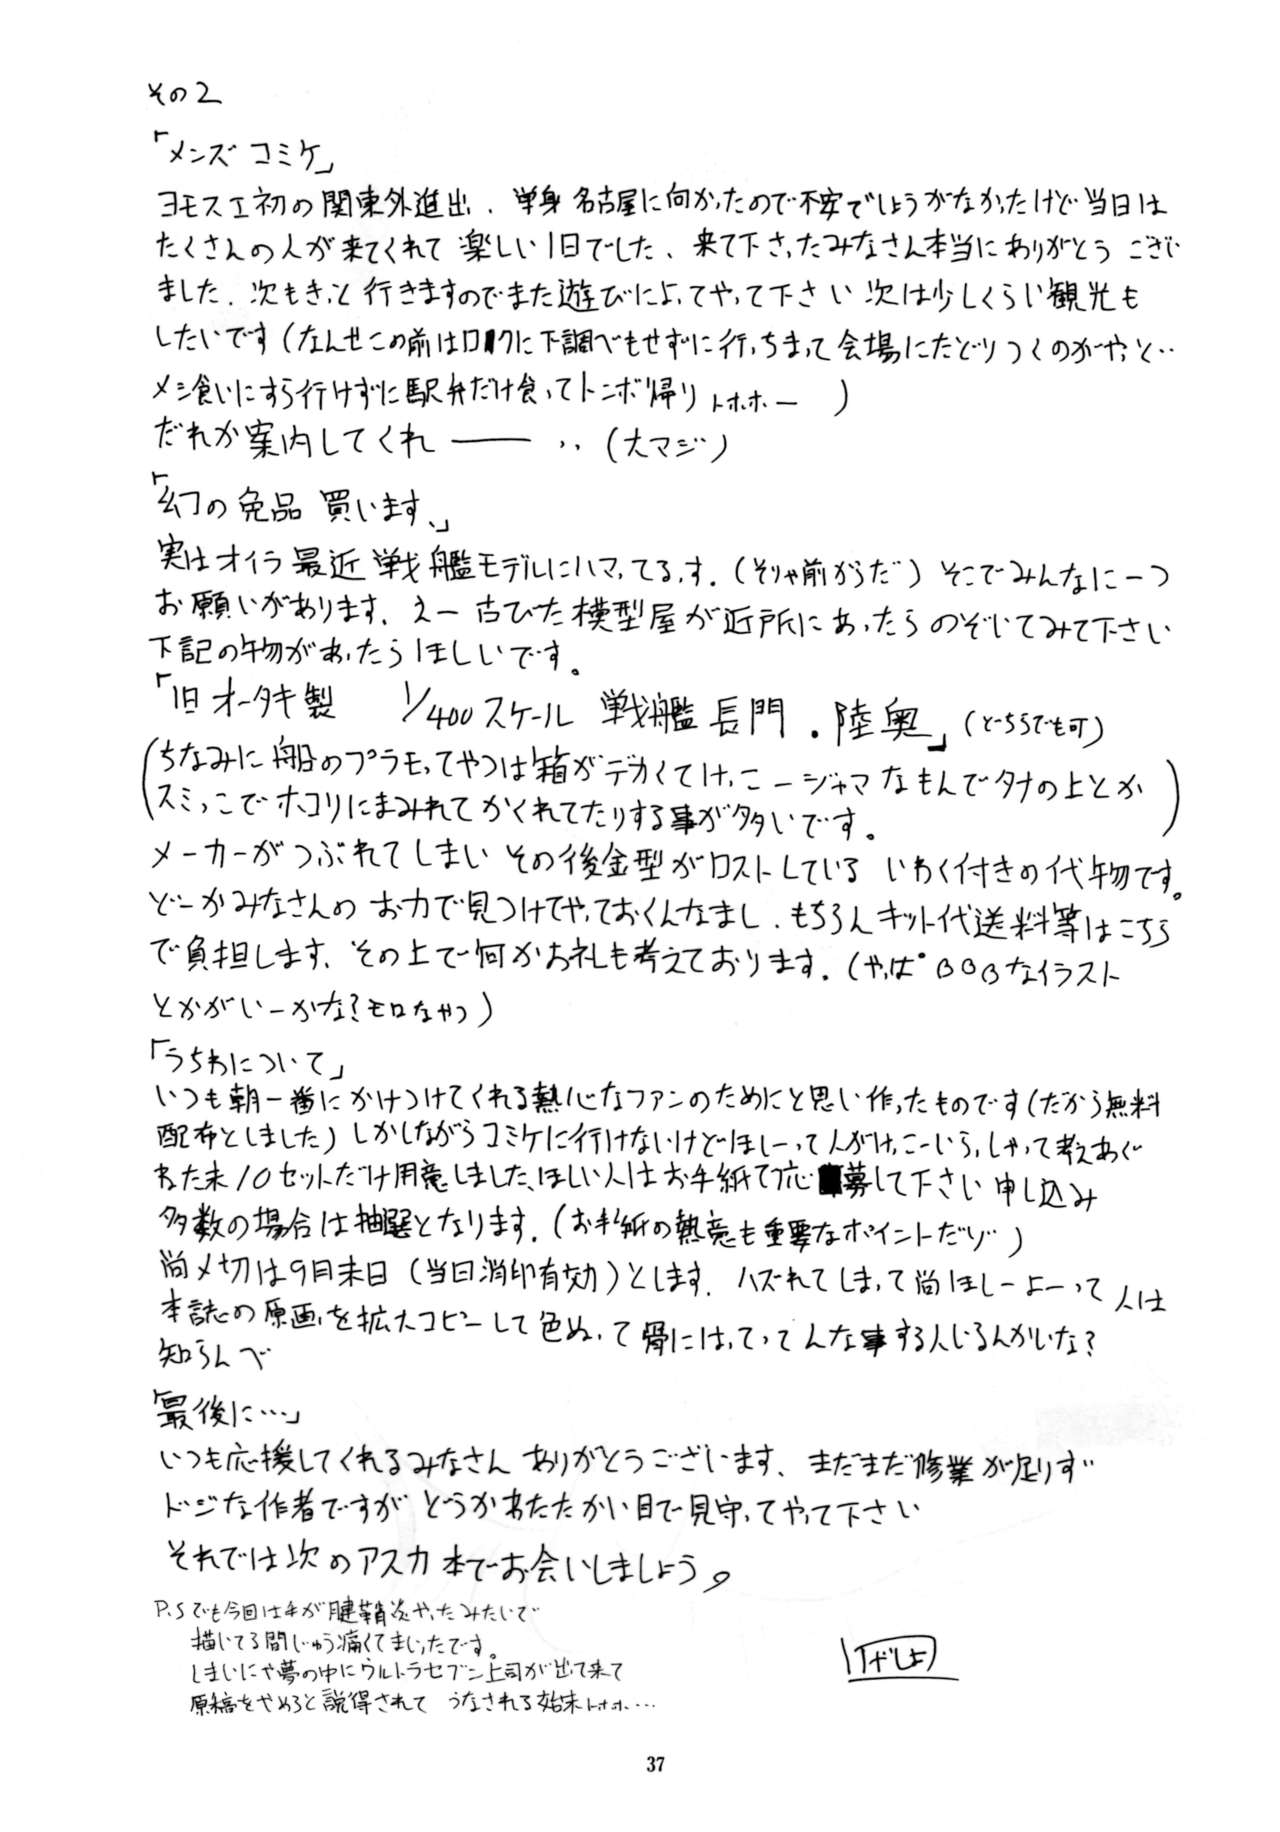 その2
「メンズコミケ」
ヨモスエ初の関東外進出、単身名古屋に向かったので不安でしょうがなかったけど当日は
たくさんの人が来てくれて楽しい1日でした、来て下さったみなさん本当にありがとうござい
ました、次もきっと行きますのでまた遊びによってやって下さい次は少しくらい観光も
したいです(なんせこの前はロクに下調べもせずに行っちまって会場にたどりつくのがやっと‥
メシ食いにすら行けずに駅弁だけ食ってトンボ帰りトホホー)
だれか案内してくれ――‥(大マジ)
「幻の免品買います、」
実はオイラ最近戦艦モデルにハマってるっす.(そりゃ前からだ)そこでみんなに一つ
お願いがあります、えー古びた模型屋が近所にあったらのぞいてみて下さい
下記の物があったらほしいです。
「旧オータキ製 1/400スケール 戦艦長門.陸奥」(どーちらでも可)
(ちなみに船のプラモってやつは箱がデカくてけっこージャマなもんでタナの上とか
スミっこでホコリにまみれてかくれてたりする事が多いです。)
メーカーがつぶれてしまいその後金型がロストしているいわく付きの代物です。
どーかみなさんのお力で見つけてやっておくんなまし.もちろんキット代送料等はこちら
で負担します、その上で何かお礼も考えております.(やっぱBOBなイラスト
とかがいーかな?モロなやつ)
「うちわについて」
いつも朝一番にかけつけてくれる熱心なファンのためにと思い作ったものです(だから無料
配布としました)しかしながらコミケに行けないけどほしーって人がけっこーいらっしゃって考えあぐ
ねた末10セットだけ用意しました、ほしい人はお手紙で応募して下さい申し込み
多数の場合は抽選となります.(お手紙の熱意も重要なポイントだゾ)
尚〆切は9月末日(当日消印有効)とします.ハズれてしまって尚ほしーよーって人は
本誌の原画を拡大コピーして色ぬって骨にはってってんな事する人いるんかいな?
知らんべ
「最後に…」
いつも応援してくれるみなさんありがとうございます、まだまだ修業が足りず
ドジな作者ですがどうかあたたかい目で見守ってやって下さい
それでは次のアスカ本でお会いしましょう。
P.Sでも今回は手が腱鞘炎やったみたいで
描いてる間じゅう痛くてまいったです。
しまいにや夢の中にウルトラセブン上司が出て来て
原稿をやめろと説得されてうなされる始末トホホ…
37